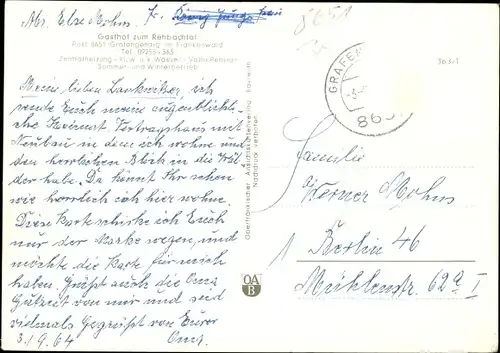 Abs. Else Mohns,
8651
Gasthof zum Rehbachtal
Post 8651 Grafengehaig im Frankenwald
Tel. 09255 - 363
Zentralheizung - Fl. w. u. k. Wasser - Volle Pension
Sommer- und Winterbetrieb
363-1
GRAFEN
865
Meine lieben Lankwitzer, ich
sende Euch meine augenblickli-
che Heimat. Vertragshaus mit
Neubau in dem ich wohne und
den herrlichen Blick in die Wäl
der habe. Da könnt Ihr sehen
wie herrlich ich hier wohne.
Diese Karte schicke ich Euch
nur der Marke wegen, und
möchte die Karte für mich
haben. Grüßt auch die Oma
Gützeit von mir und seid
vielmals Gegrüßt von Eurer
3.9.64 Oma.
Oberfränkischer Ansichtskartenverlag Bayreuth
Nachdruck verboten
OA
B
Familie
Werner Mohns
1 Berlin 46
Mühlenstr. 62a I